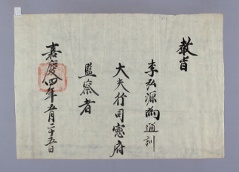 敎旨
李弘源爲通訓
大夫行司憲府
監察者
嘉慶四年五月二十五日